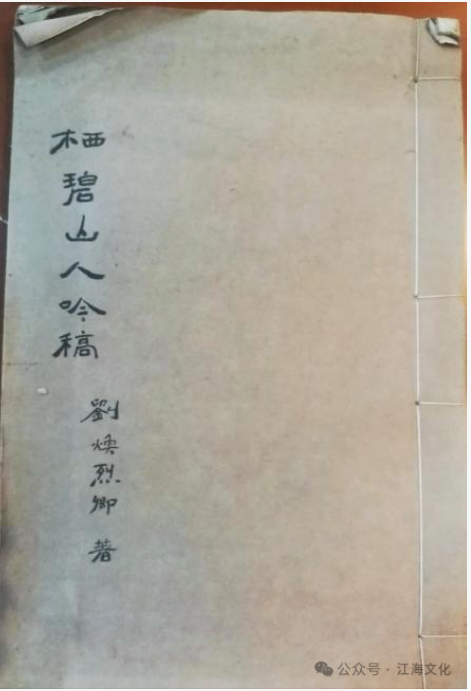 栖碧山人吟稿
劉煥烈卿 著
公众号·江海文化